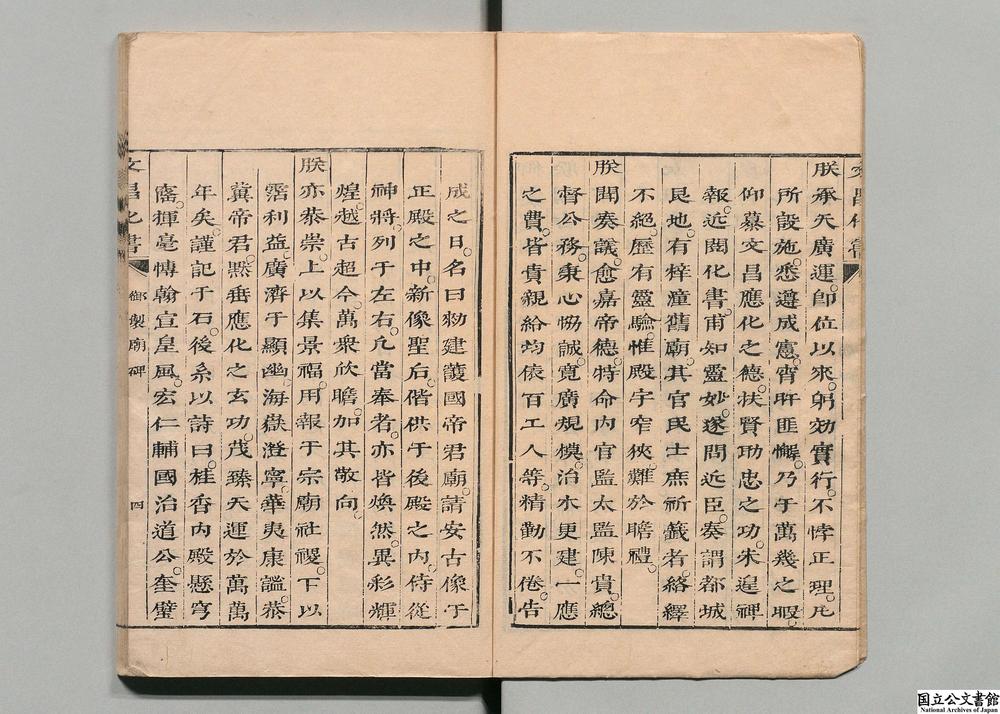 朕承天廣運。卽位以來。躬效實行。不悖正理。凡
所設施。悉遵成憲。宵旰匪懈。乃于萬幾之暇。
仰慕文昌應化之德。扶賢助忠之功。未遑裨
報。近閱化書。甫知靈妙。遂問近臣。奏謂都城
艮地。有梓潼舊廟。其官民士庶祈籤者。絡繹
不絕。歷有靈驗。惟殿宇窄狹。難於瞻禮。
朕聞奏議。愈嘉帝德。特命內官監太監陳貴。總
督公務。秉心恊誠。寬廣規模。治木更建。一應
之費。皆貴親給均依百工人等。精勤不倦。告
成之日。名曰勑建護國帝君廟。請安古像于
正殿之中。新像聖后。偕供于後殿之內。侍從
神將。列于左右。凡當奉者。亦皆煥然。異彩輝
煌。越古超今。萬衆欣瞻。加其敬向。
朕亦恭崇。上以集景福。用報于宗廟社稷。下以
霑利益。廣濟于顯幽。海嶽澄寧。華夷康謐。恭
冀帝君。默垂應化之玄功。茂臻天運於萬萬
年矣。謹記于石。後系以詩曰。桂香內殿懸穹
窿。揮毫慱翰宣皇風。宏仁輔國治道公。奎璧
文昌化書
御製廟碑
四
国立公文書館
National Archives of Japan